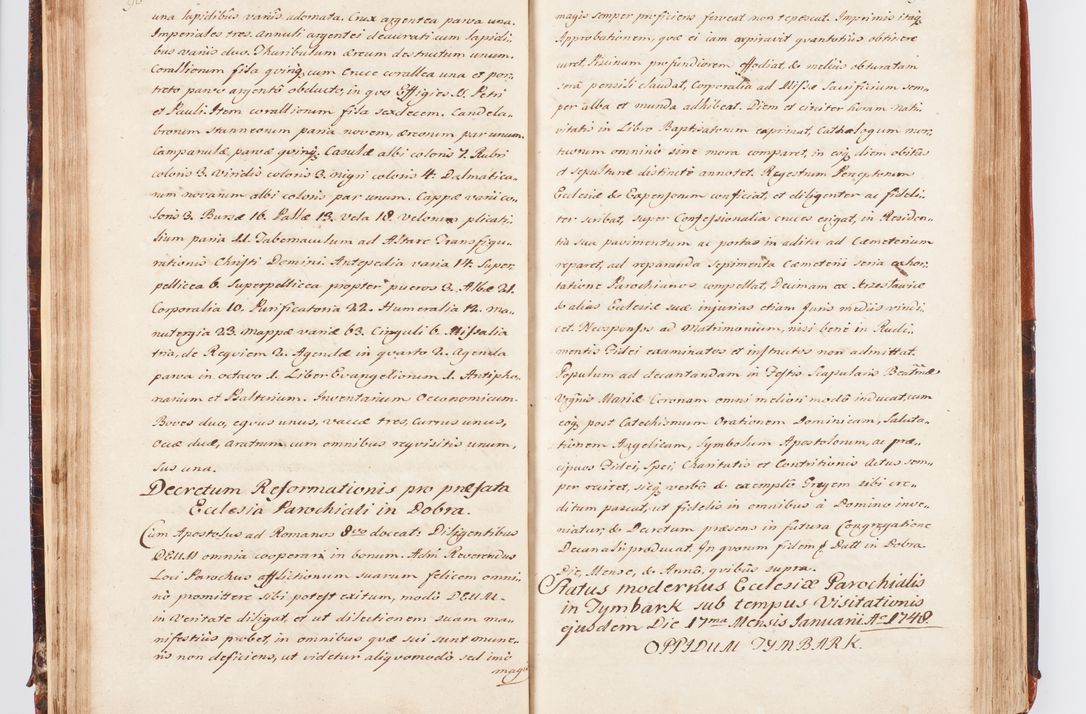 una lapidibus variis adornata. Crux argentea parva una.
Imperiales tres. Annuli argentei deaurati cum lapidi„
bus variis duo. Thuribulum æreum destructum unum.
Coralliorum fila quinq; cum Cruce corallea una et por„
treto parvo argentô obducto, in quo Effigies S. Petri
et Pauli. Item corallionum fila sexdecem. Candela„
brorum stanneorum paria novem, æreorum par unum.
Campanulæ parvæ quinq; Casulæ albi coloris 7. Rubri
coloris 3. viridis coloris 3. nigri coloris 4. Dalmatica„
rum novarum albi coloris par unum. Cappæ varii co„
loris 3. Bursæ 16. Pallæ 13. Vela 18. velorum plicati„
lium paria 11. Tabernaculum ad Altare Transfigu„
rationis Christi Domini. Antepedia varia 14. Super„
pellicea 6. Superpellicea propter pueros 3. Albæ 21.
Corporalia 10. Purificatoria 22. Humeralia 12. Ma„
nutergia 23. Mappæ variæ 63. Cinguli 6. Missalia
tria, de Requiem 2. Agendæ in quarto 2. Agenda
parva in octavo 1. Liber Evangeliorum 1. Antipho„
narium et Psalterium. Inventarium Oeconomicum.
Boves duo, equus unus, vaccæ tres, Currus unus,
Occæ duæ, aratrum cum omnibus requisitis unum,
Sus una.
Decretum Reformationis pro præfata
Ecclesia Parochiali in Dobra.
Cum Apostolus ad Romanos 8vo doceat: Diligentibus
DEUM omnia cooperari in bonum. Adm Reverendus
Loci Parochus afflictionum suarum felicem omni„
nò promittere sibi potest exitum, modò DEUM
in veritate diligat, et ut dilectionem suam ma„
nifestius probet, in omnibus quæ sui sunt mune„
ris non deficiens, ut videtur aliquomodo sed imò
magis
magis semper proficiens, ferveat non tepescat. Imprimis itaq;
Approbationem, quæ ei iam expiravit quantotiùs obtinere
curet, Piscinam profundiorem effodiat, & meliùs obturatam
serâ pensili claudat, Corporalia ad Missæ Sacrificium sem„
per alba et munda adhibeat. Diem et circiter horam nati„
vitatis in Libro Baptisatorum exprimat, Cathalogum mor„
tuorum omninò sine mora comparet, in eoq; diem obitûs
et sepulturæ distinctè annotet. Regestrum Perceptorum
Ecclesiæ & Expensorum conficiat, et diligenter ac fideli„
ter scribat, super Confessionalia cruces erigat, in Residen„
tia sua pavimentum ac portas in aditu ad Cæmeterium
reparet, ad reparanda sepimenta Cæmeterii seria exhor„
tatione Parochianos compellat, Decimam ex
& alias Ecclesiæ suæ injurias etiam Juris mediis vindi„
cet. Neosponsos ad Matrimonium, nisi benè in Rudi„
mentis Fidei examinatos et instructos non admittat.
Populum ad decantandam in Festis Scapularis Beatissimæ
Virginis Mariæ Coronam omni meliori modô inducat, cum
eoq; post Catechismum Orationem Dominicam, Saluta„
tionem Angelicam, Symbolum Apostolorum, ac præ„
cipuos Fidei, Spei, Charitatis et Contritionis Actus sem„
per exciret, sicq; verbô & exemplô Gregem sibi cre„
ditum pascat, ut fidelis in omnibus â Domino inve„
niatur, & Decretum præsens in futura Congregatione
Decanali producat. In quorum fidem Datt in Dobra
Die, Mense, & Annô, quibus supra.
Status modernus Ecclesiæ Parochialis
in Tymbark sub tempus Visitationis
ejusdem Die 17ma Mensis Januarii Ao 1748.
OPPIDUM TYMBARK.